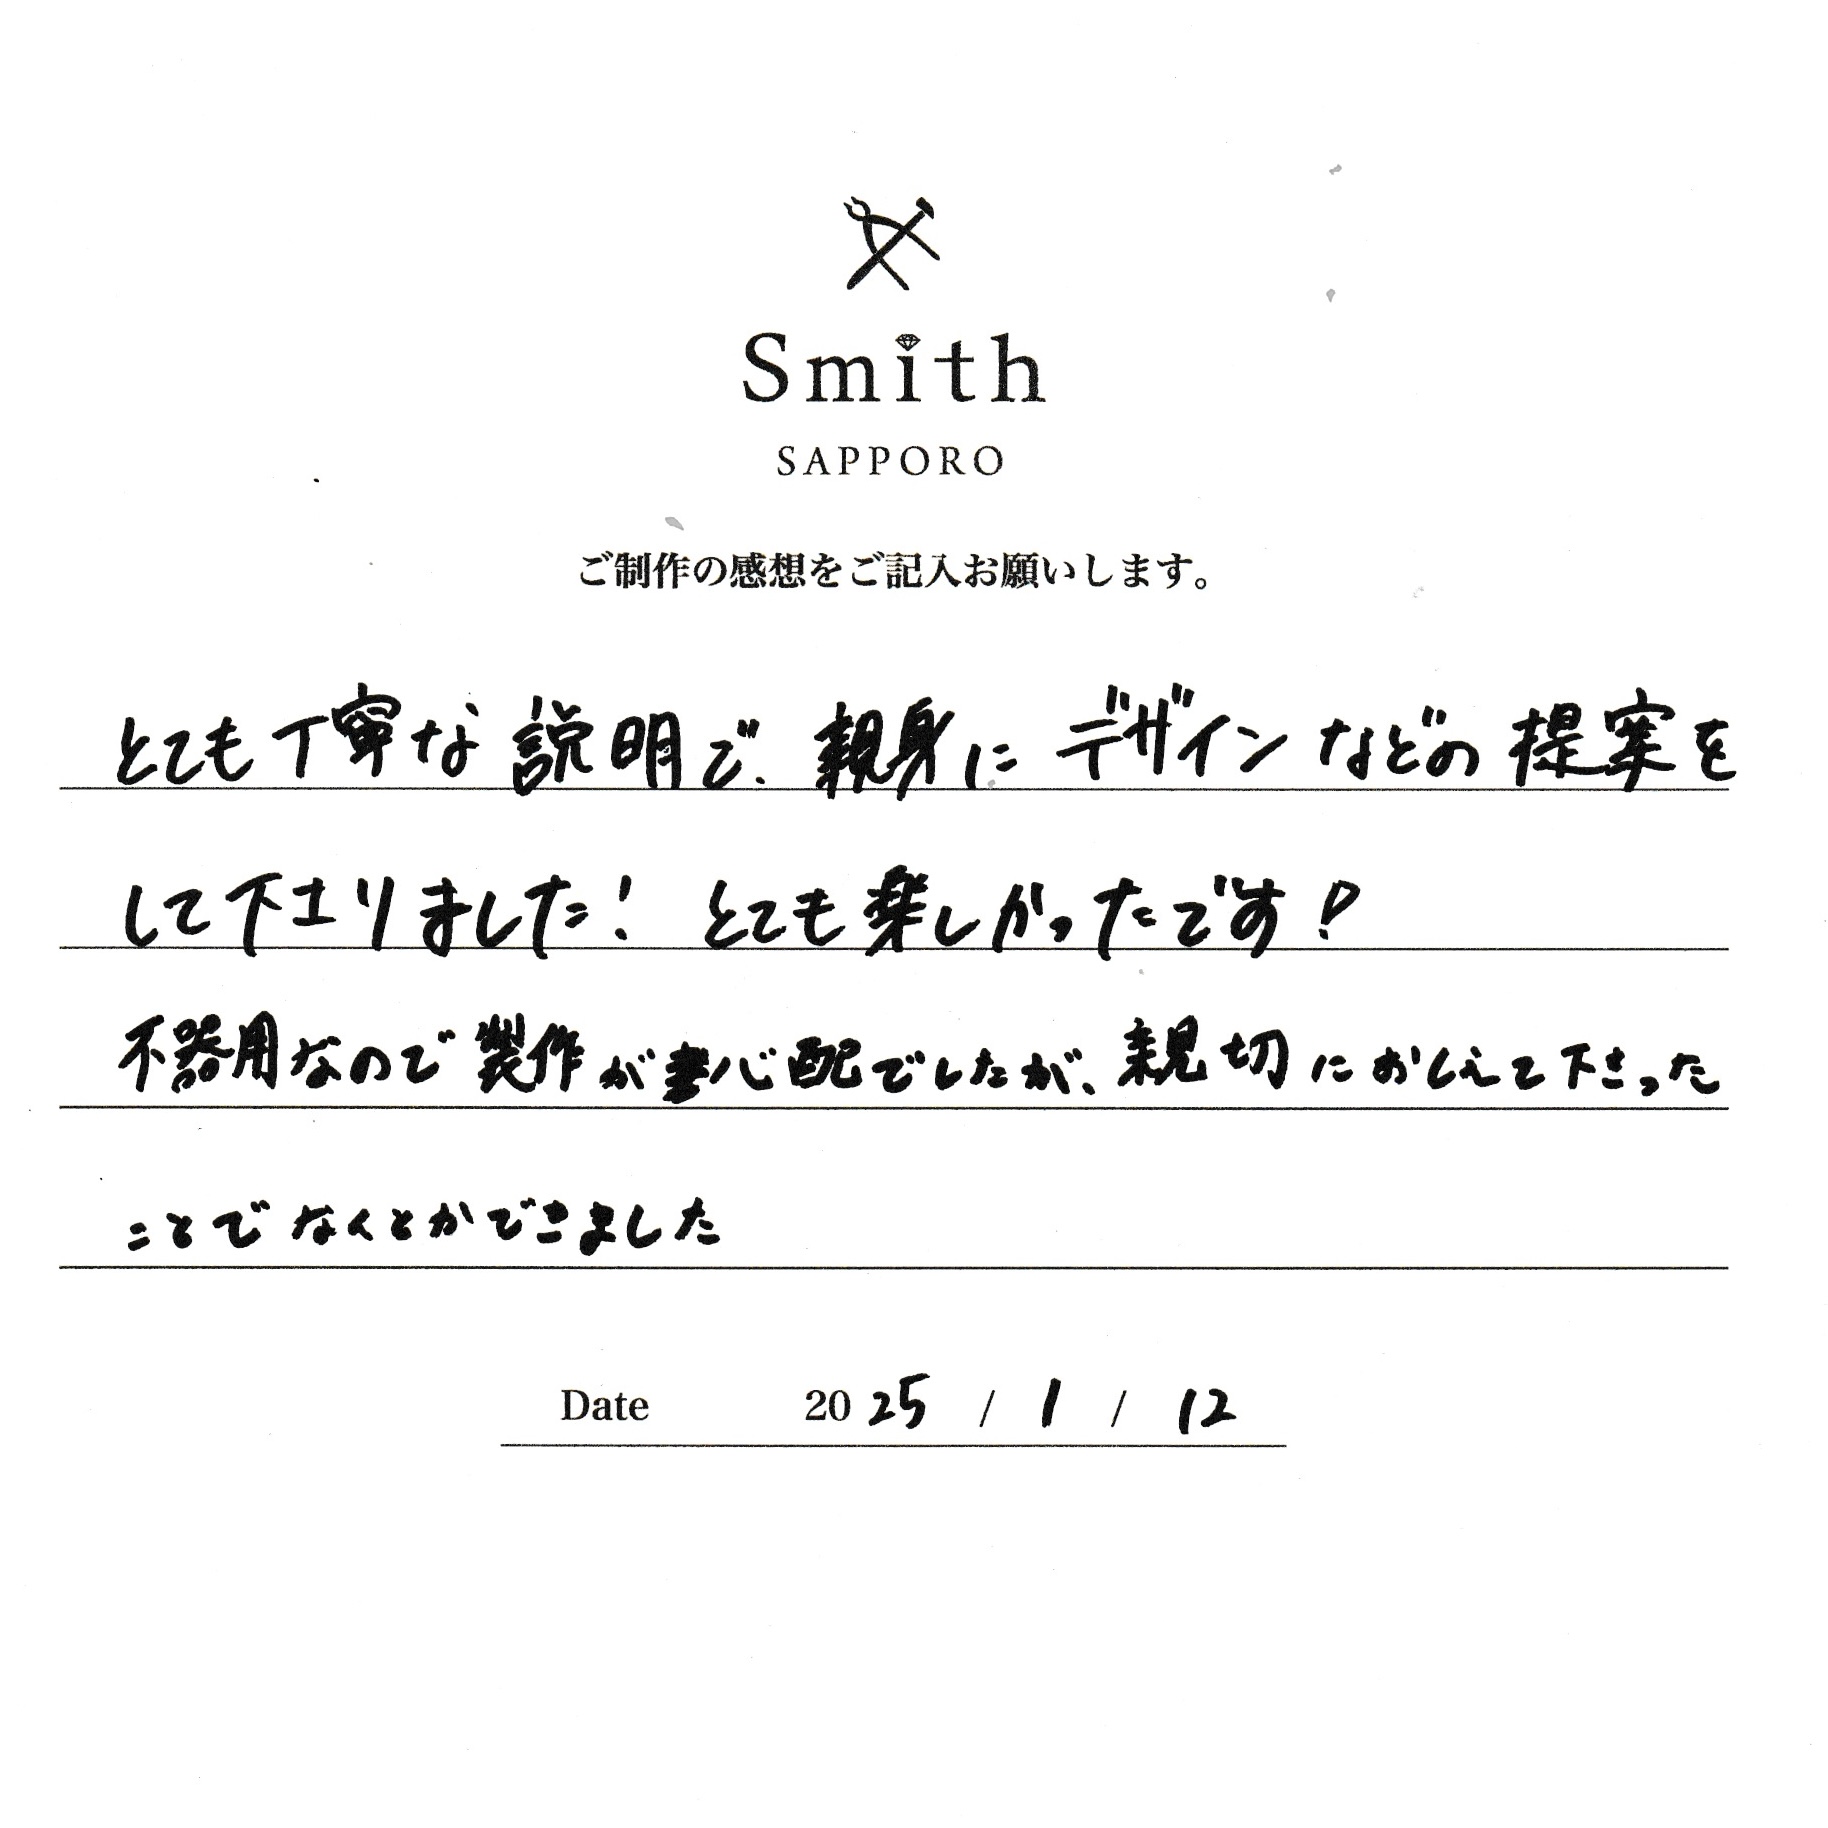 Smith
SAPPORO
ご制作の感想をご記入お願いします。
とても丁寧な説明で、親身にデザインなどの提案を
して下さりました! とても楽しかったです!
不器用なので製作が心配でしたが、親切におしえて下さった
ことでなんとかできました
Date 2025 / 1 / 12